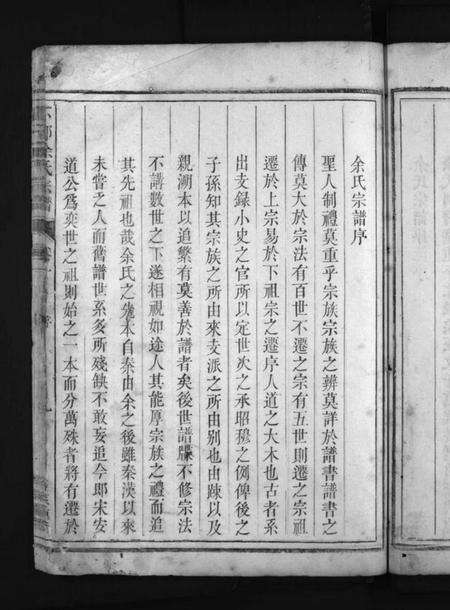 余氏宗譜序
聖人制禮莫重乎宗族宗族之辨莫詳於譜書譜書之
傳莫大於宗法有百世不遷之宗有五世則遷之宗祖
遷於上宗易於下祖宗之遷序人道之大本也古者系
出支錄小史之官所以定世次之承昭穆之例俾後之
子孫知其宗族之所由來支派之所由别也由踈以及
親溯本以追繁有莫善於譜者矣後世譜牒不修宗法
不講數世之下遂相視如途人其能厚宗族之禮而追
其先祖也哉余氏之先本自秦由余之後雖秦漢以來
未嘗之人而舊譜世系多所殘缺不敢妄追今即宋安
道公爲奕世之祖則始之一本而分萬殊者將有遷於
余氏宗譜